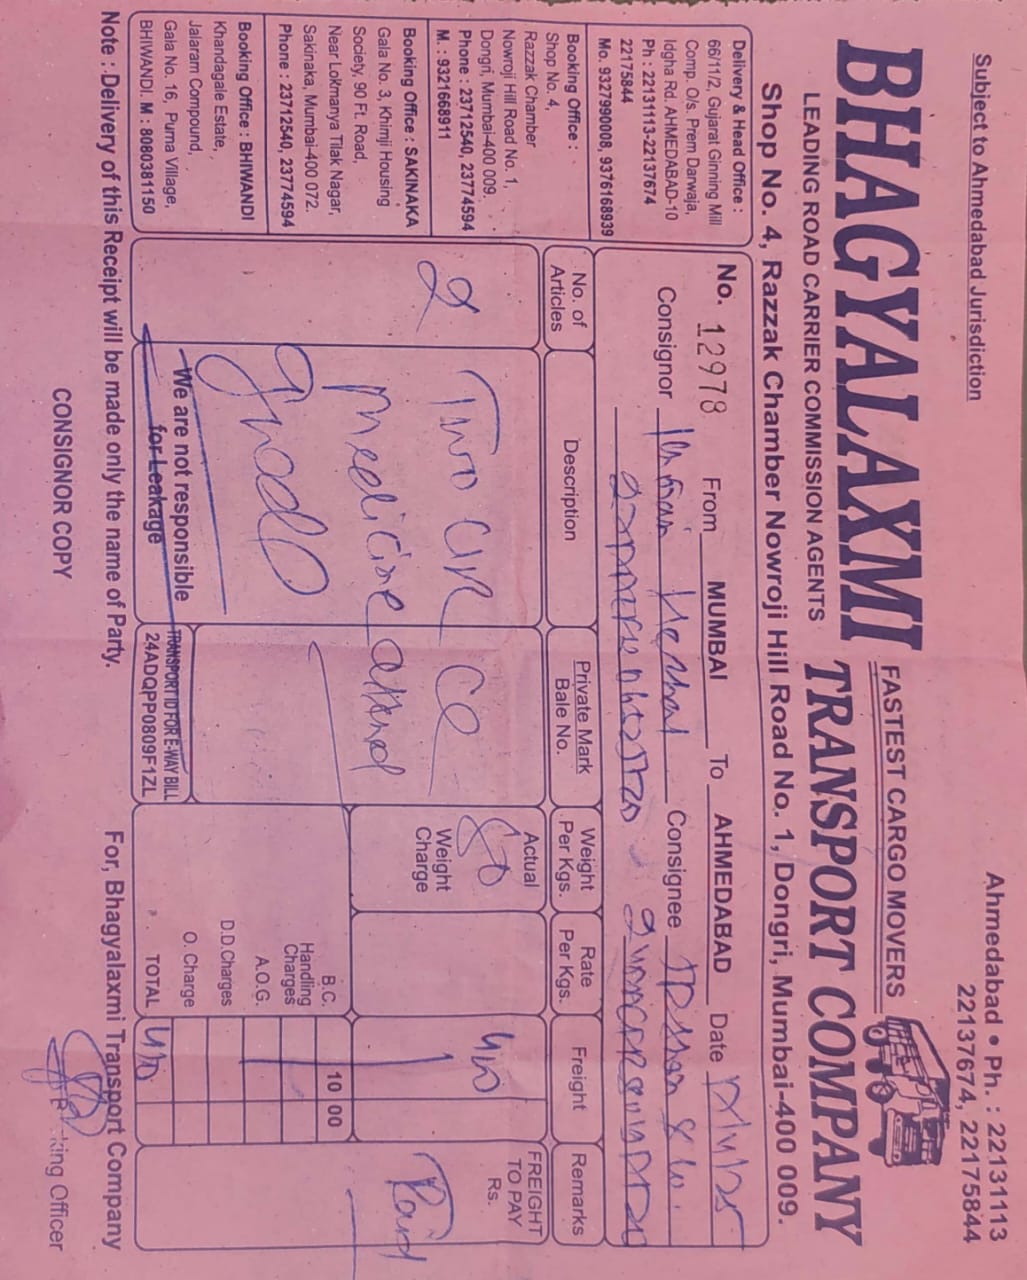 Subject to Ahmedabad Jurisdiction
Ahmedabad • Ph. : 22131113
22137674, 22175844
BHAGYALAXMI TRANSPORT COMPANY
FASTEST CARGO MOVERS
LEADING ROAD CARRIER COMMISSION AGENTS
Shop No. 4, Razzak Chamber Nowroji Hill Road No. 1, Dongri, Mumbai-400 009.
Delivery & Head Office :
66/11/2, Gujarat Ginning Mill
Comp. O/s. Prem Darwaja,
Idgha Rd. AHMEDABAD-10
Ph : 22131113-22137674
22175844
Mo. 9327990008, 9376168939
Booking Office :
Shop No. 4,
Razzak Chamber
Nowroji Hill Road No. 1,
Dongri, Mumbai-400 009.
Phone : 23712540, 23774594
M. : 9321668911
Booking Office : SAKINAKA
Gala No. 3, Khimji Housing
Society, 90 Ft. Road,
Near Lokmanya Tilak Nagar,
Sakinaka, Mumbai-400 072.
Phone : 23712540, 23774594
Booking Office : BHIWANDI
Khandagale Estate,
Jalaram Compound,
Gala No. 16, Purna Village,
BHIWANDI. M : 8080381150
No. 12978 From MUMBAI To AHMEDABAD Date
Consignor Consignee
No. of Articles
Description
Private Mark
Bale No.
Weight Per Kgs.
Rate Per Kgs.
Freight
Remarks
2
Two
medicine
good
Actual
80
Weight Charge
FREIGHT TO PAY Rs.
Paid
B.C. 10 00
Handling Charges
A.O.G.
D.D.Charges
O. Charge
TOTAL
We are not responsible
for Leakage
TRANSPORT ID FOR E-WAY BILL
24ADQPP0809F1ZL
Note : Delivery of this Receipt will be made only the name of Party.
For, Bhagyalaxmi Transport Company
CONSIGNOR COPY
king Officer